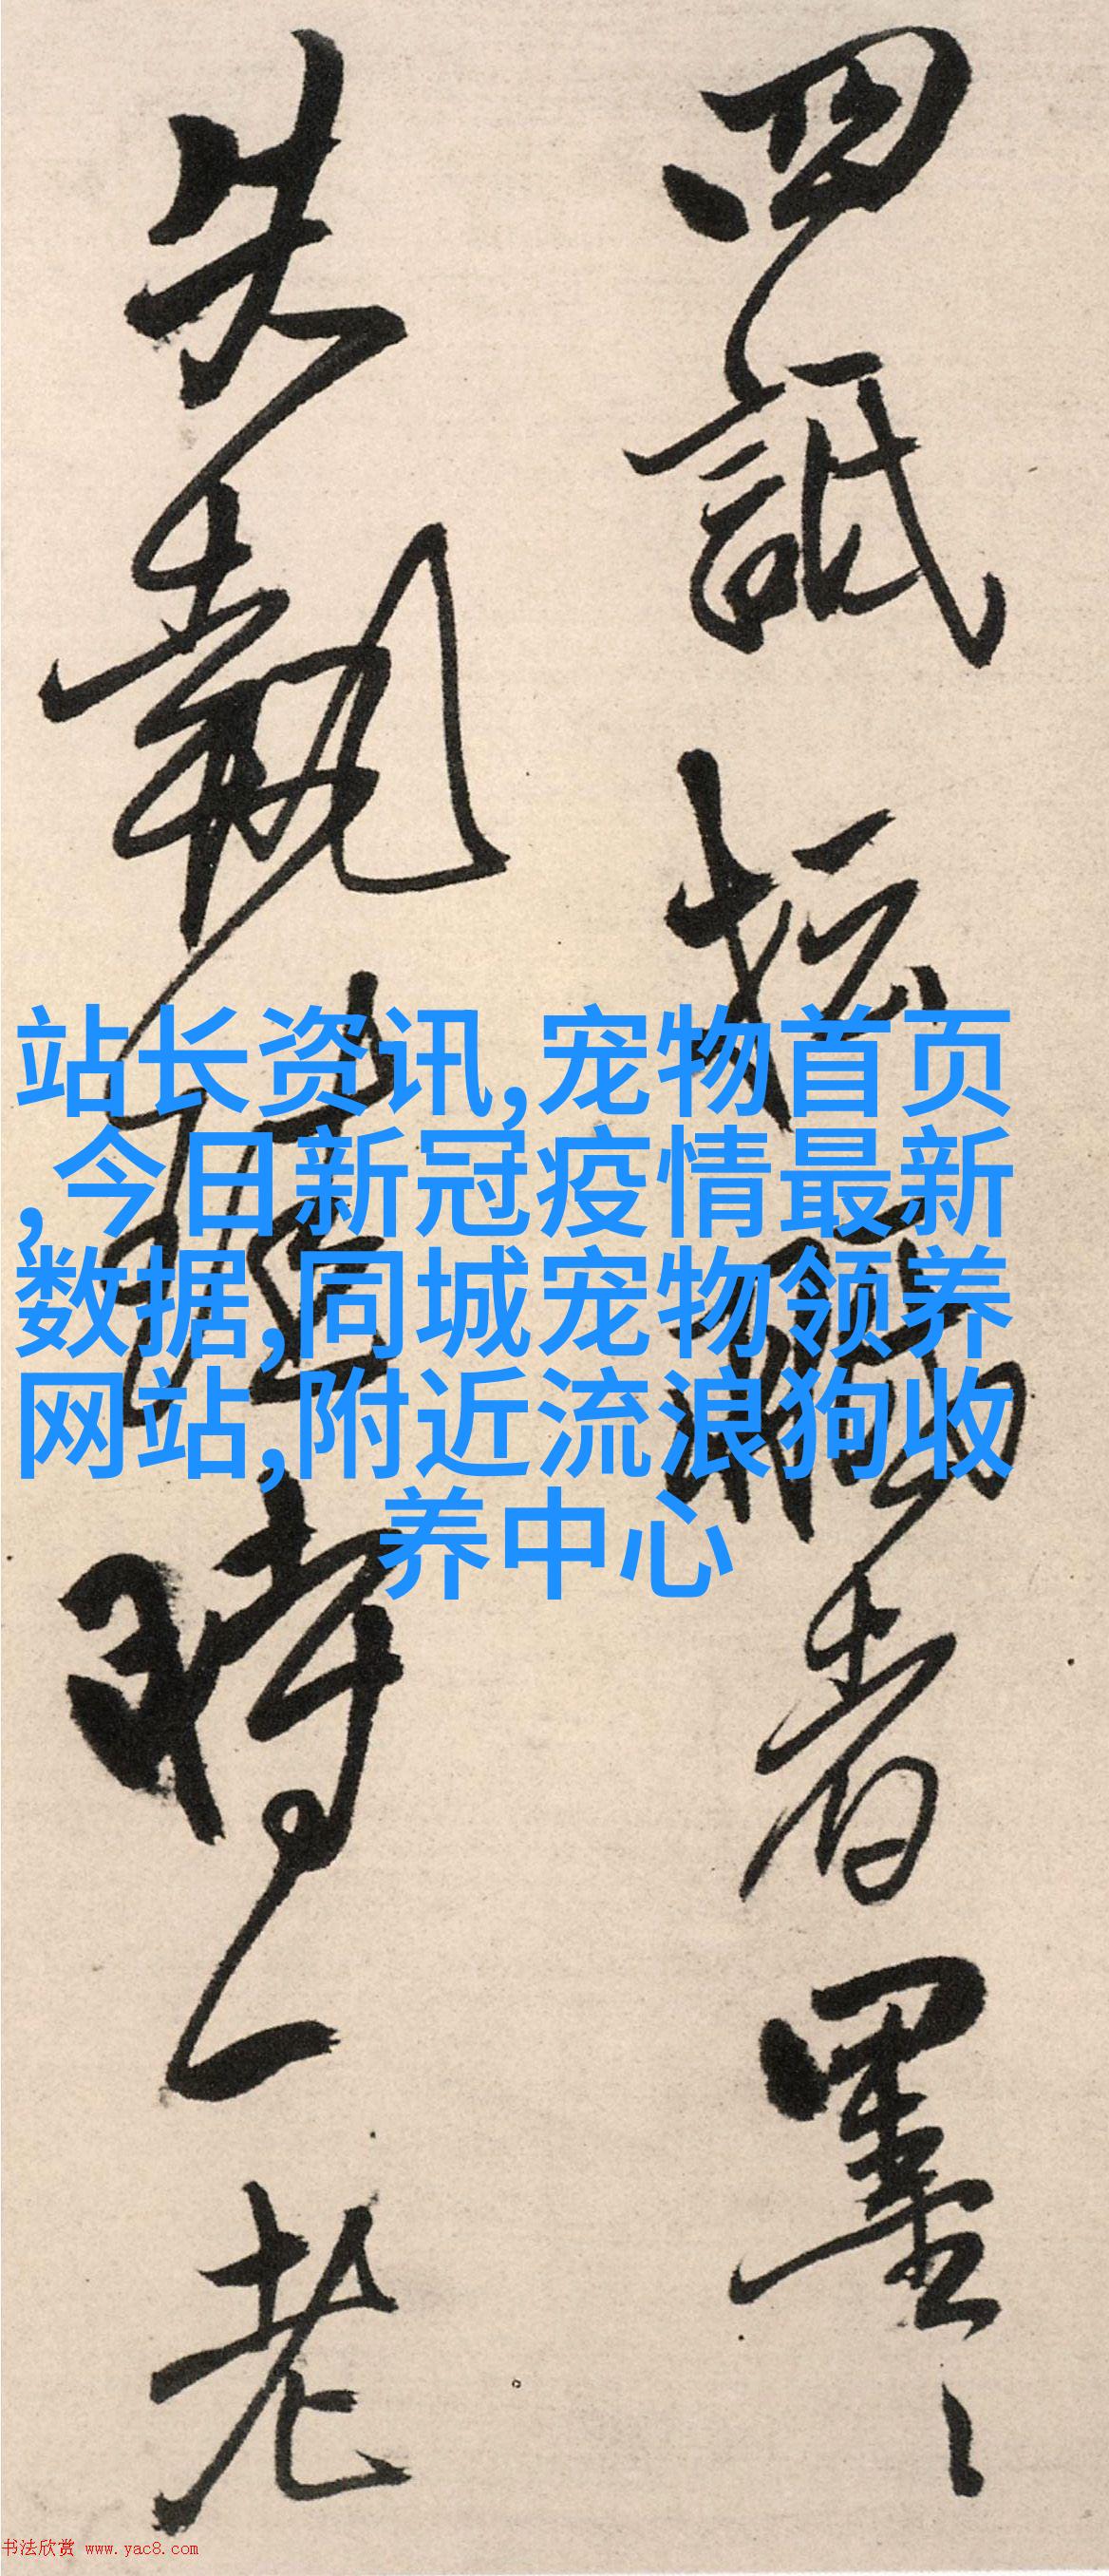 四詆者墨
失執時一老
站长资讯,宠物首页
,今日新冠疫情最新
数据,同城宠物领养
网站,附近流浪狗收
养中心
书法欣赏 www.yac8.com